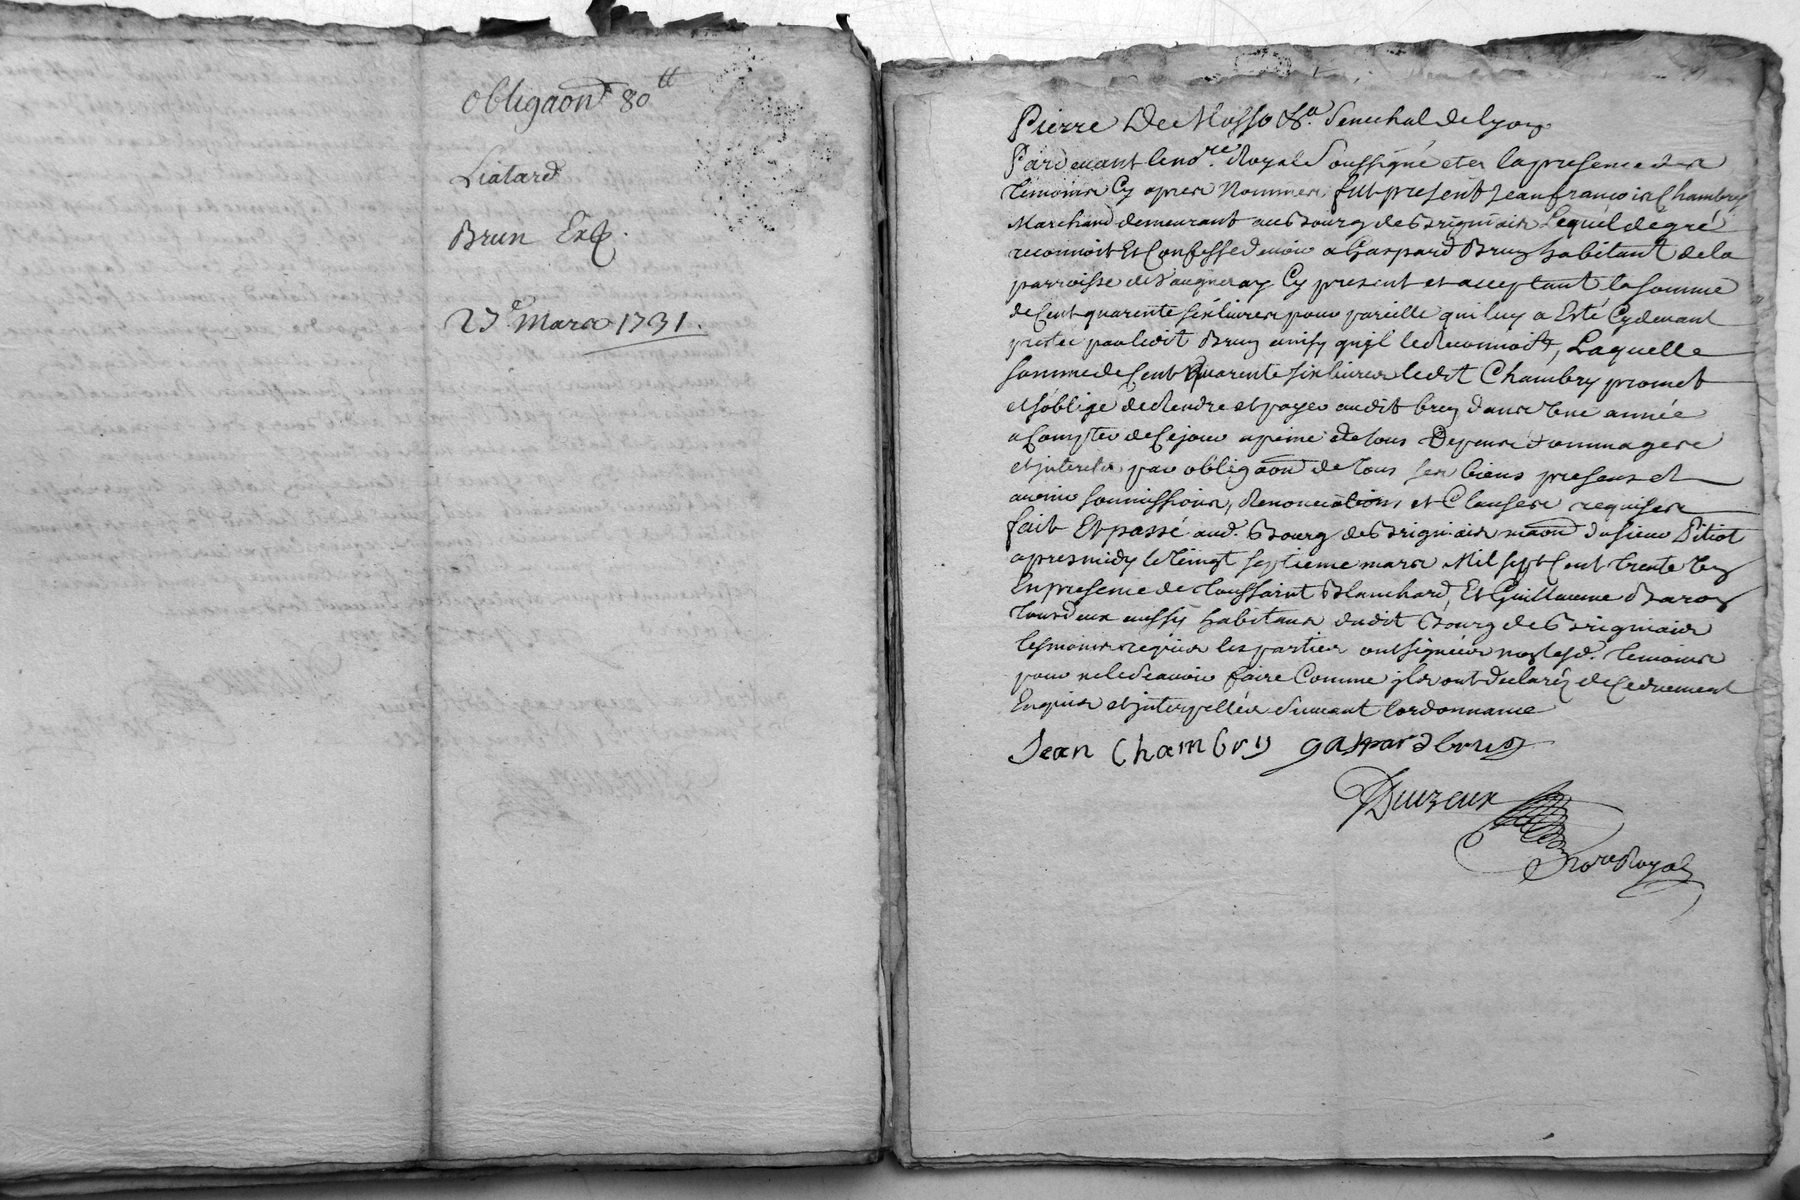 obligaon 80tt
Liatard
Brun Exp.
27e Mars 1731.
Pierre De Masso &a. Senechal de lyon
Pardevant le nore. Royal Soussigné et en la presence des
temoins Cy apres Nommes, fut present Jean francois Chambry
Marchand demeurant au Bourg de Brignais Lequel de gré
reconnoit Et Confesse devoir a Gaspard Brun habitant de la
parroisse de Vaugneray Cy present et acceptant la somme
de Cent quarente six livres pour pareille qui luy a Esté Cydevant
prestée par ledit Brun ainsy qu'jl le Reconnoit, Laquelle
somme de Cent Quarente six livres ledit Chambry promet
et s'oblige de Rendre et payer audit brun dans Une année
a Compter de Ce jour a peine de tous Depens dommages
et jnterets par obligaon de tous ses biens presens et
avenir soumissions, Renonciations et Clauses requises
fait Et passé aud. Bourg de Brignais maon du sieur Pitiot
apres midy le Vingt septieme mars Mil sept Cent trente Un
En presence de Toussaint Blanchard, Et Guillaume Baron
tous deux aussy habitans dudit Bourg de Brignais
tesmoins requis les parties ont signées non lesd. temoins
pour ne le Scavoir faire Comme jls ont declaréz de Ce duement
Enquis et jnterpellés suivant l'ordonnance
Jean Chambry gaspard brun
Duvzeux
Nore Royal